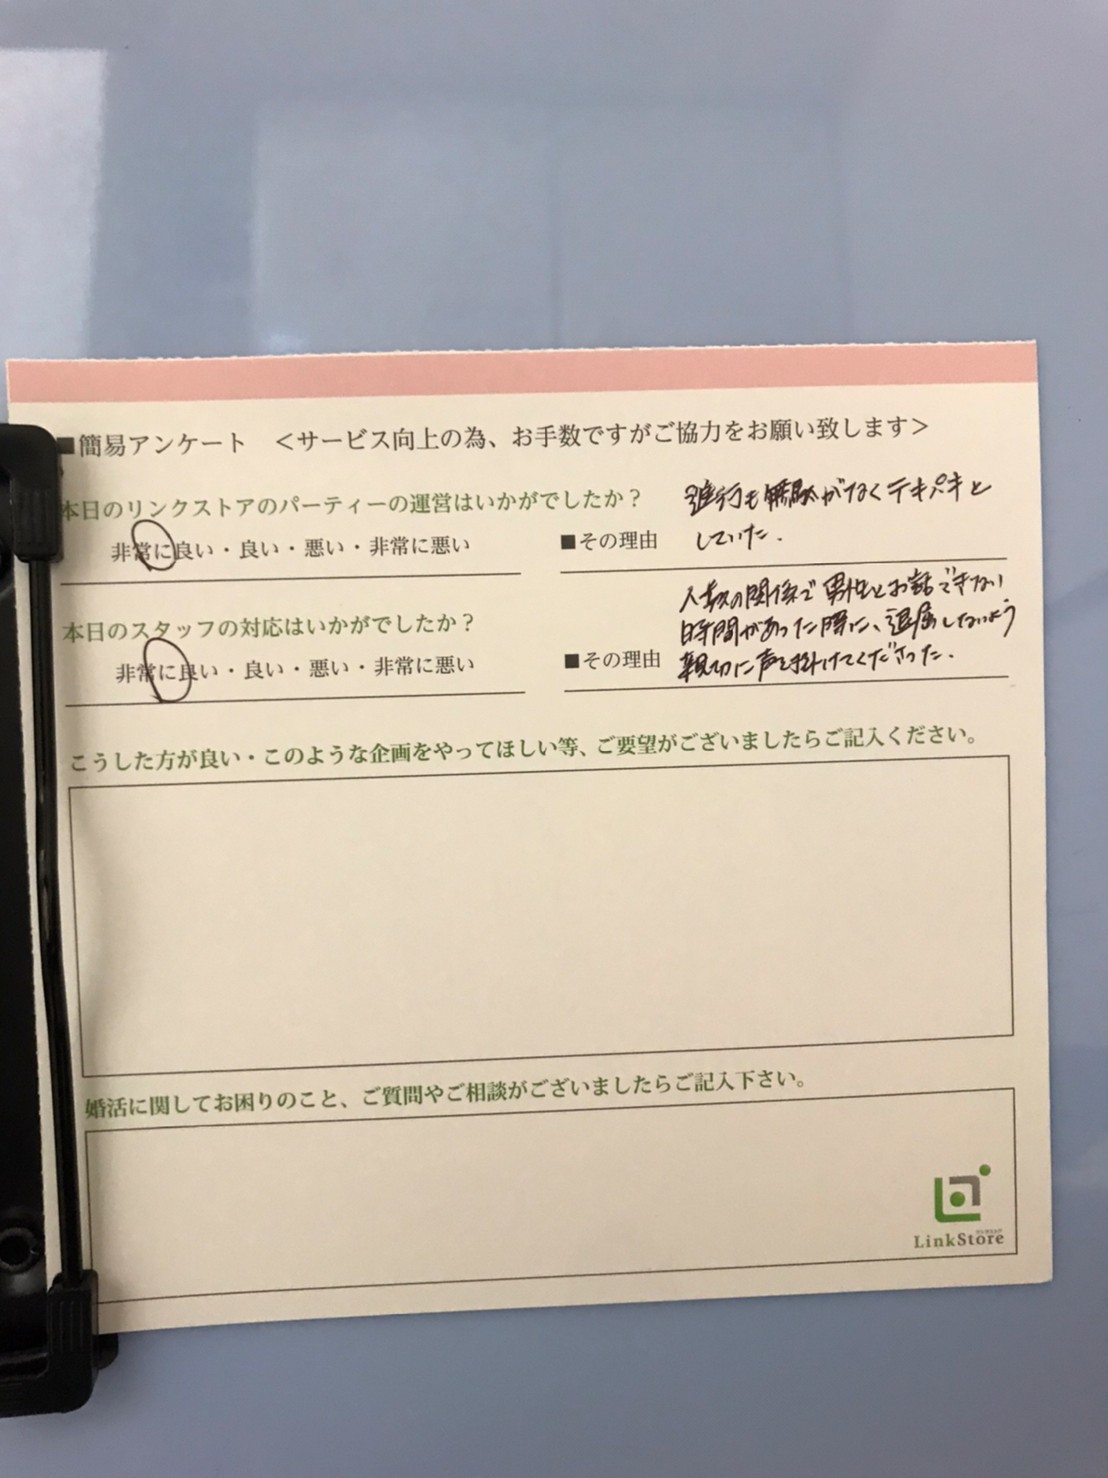 ■簡易アンケート　＜サービス向上の為、お手数ですがご協力をお願い致します＞
本日のリンクストアのパーティーの運営はいかがでしたか？
非常に良い・良い・悪い・非常に悪い
■その理由
進行も無駄がなくテキパキと
していた.
本日のスタッフの対応はいかがでしたか？
非常に良い・良い・悪い・非常に悪い
■その理由
人数の関係で男性とお話できない
時間があった際に、退屈しないよう
親切に声を掛けてくださった.
こうした方が良い・このような企画をやってほしい等、ご要望がございましたらご記入ください。
婚活に関してお困りのこと、ご質問やご相談がございましたらご記入下さい。
LinkStore